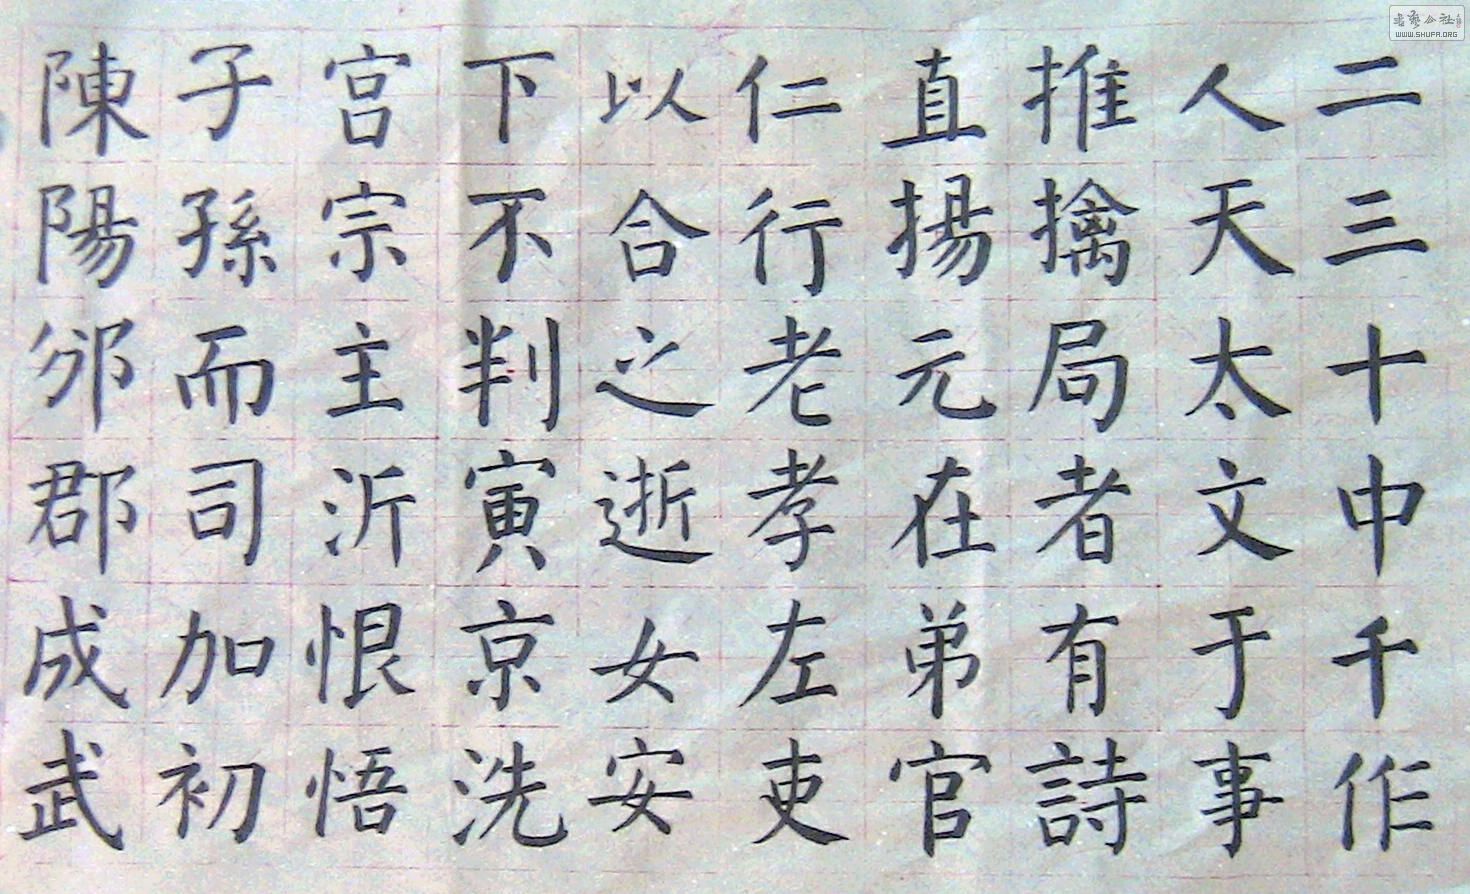 二三十中千作
人天太文于事
推擒局者有詩
直揚元在弟官
仁行老孝左吏
以合之逝女安
下不判寅京洗
宫宗主沂恨悟
子孫而司加初
陳陽邠郡成武
WWW.SHUFA.ORG